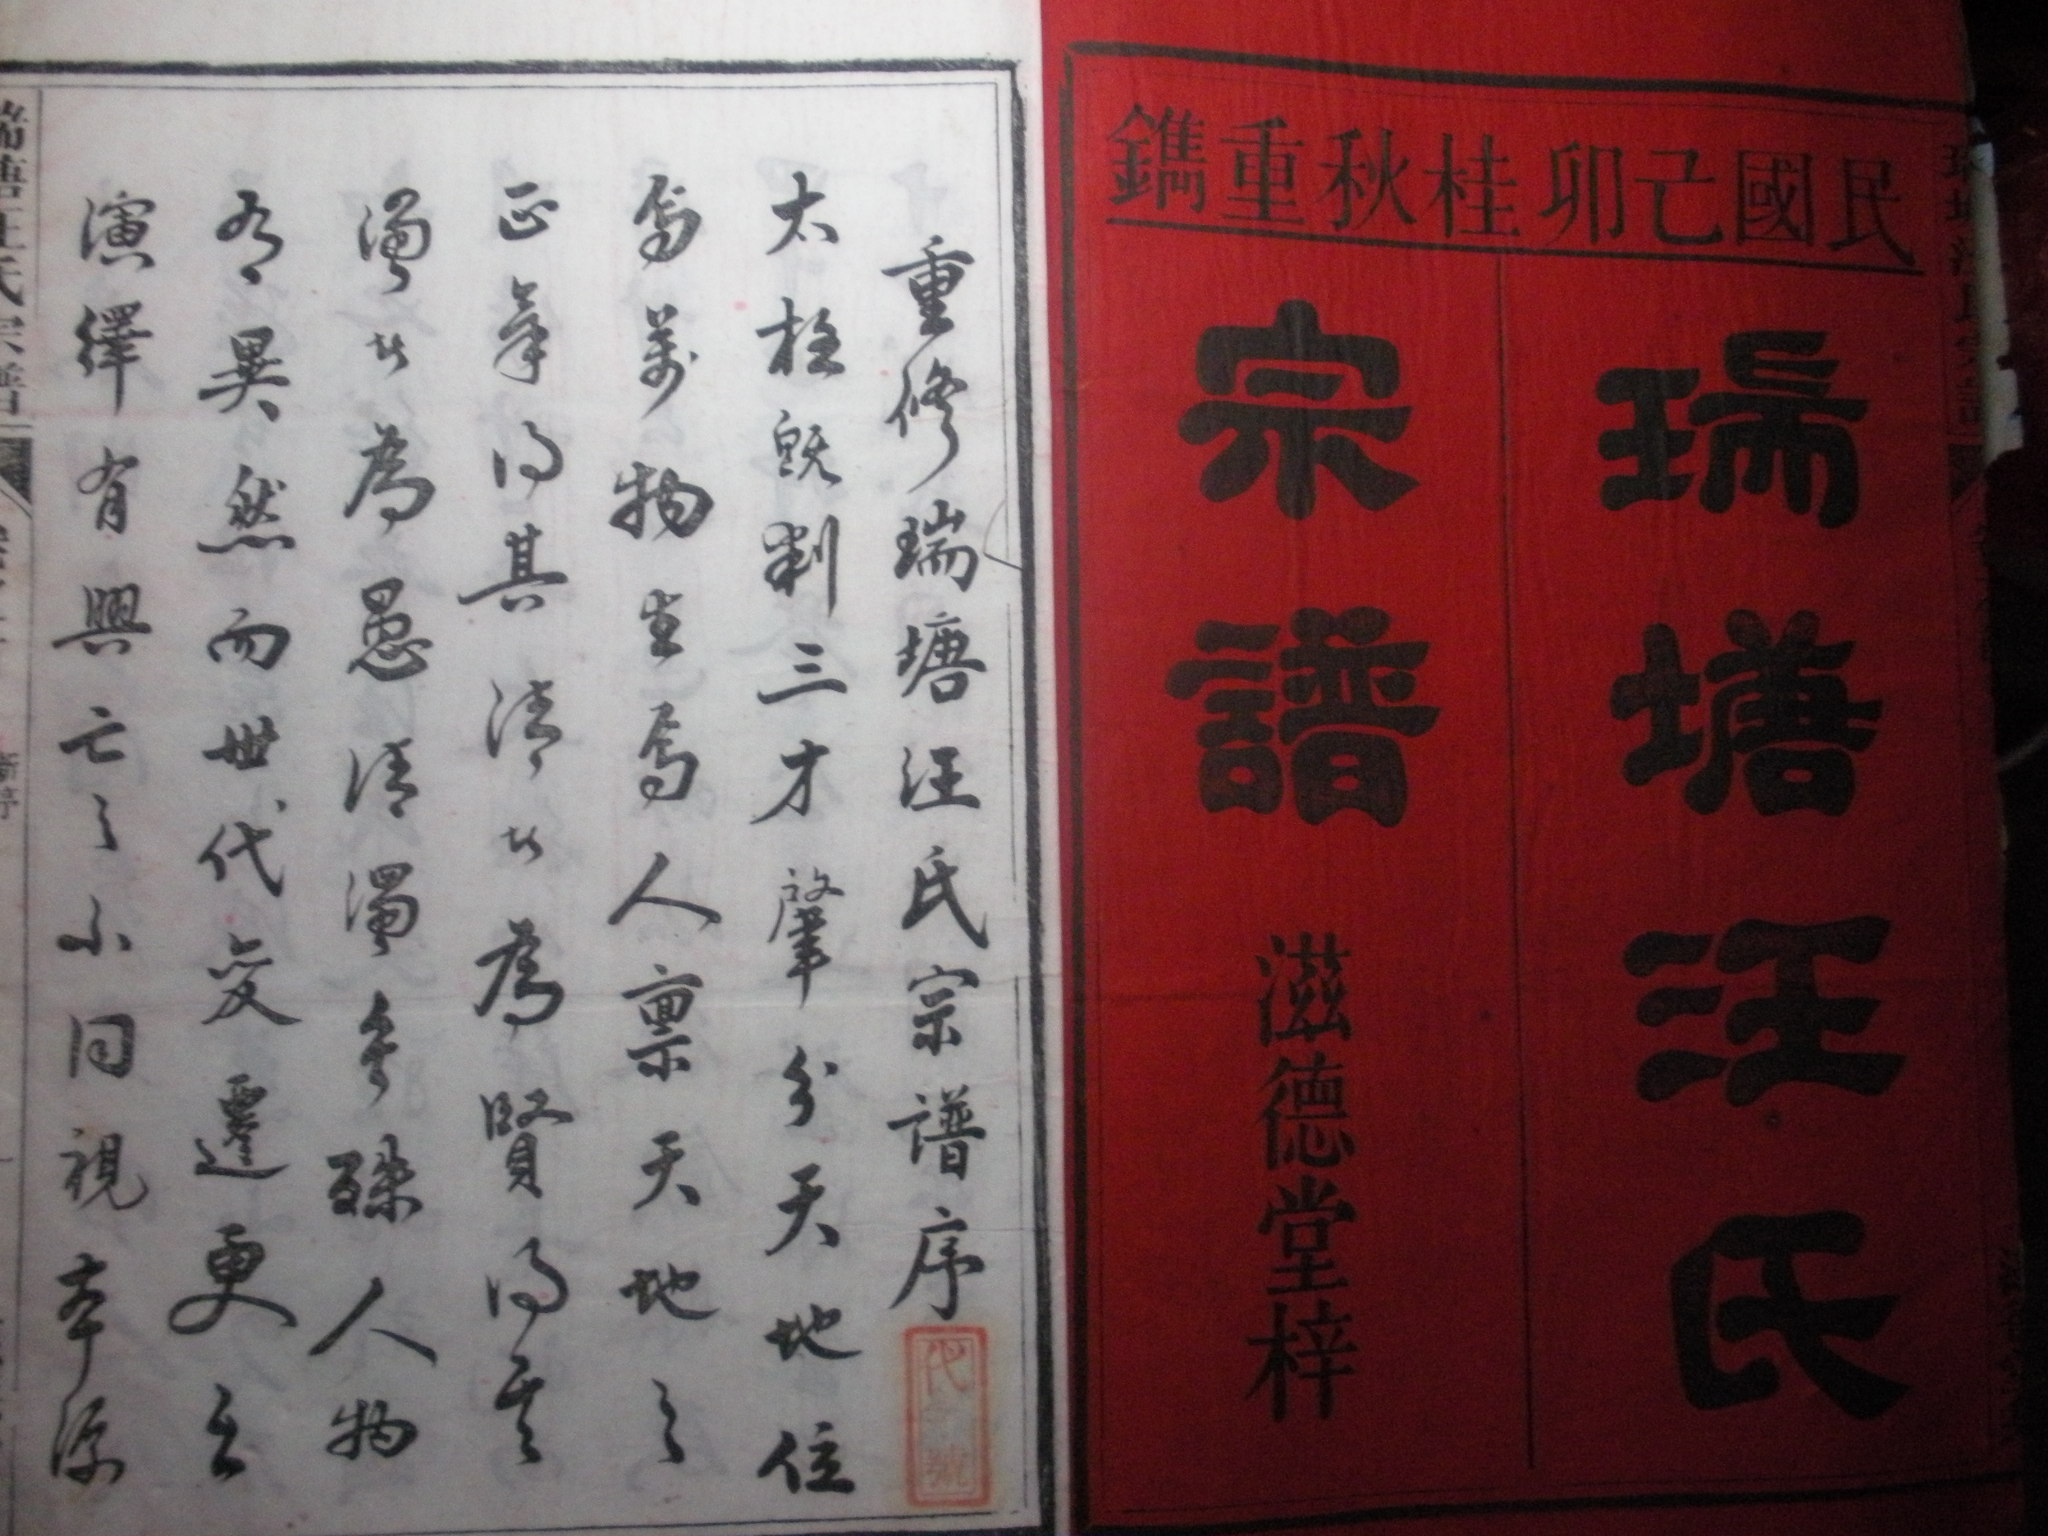 民國己卯桂秋重鐫
瑞塘汪氏
宗譜
滋德堂梓
重修瑞塘汪氏宗譜序
太極既判三才肇分天地位
焉萬物生焉人禀天地之
正氣得其清者為賢得其
濁者為愚清濁參殊人物
乃異然而世代變遷更立
演繹有興亡之不同視本源
瑞塘汪氏宗譜